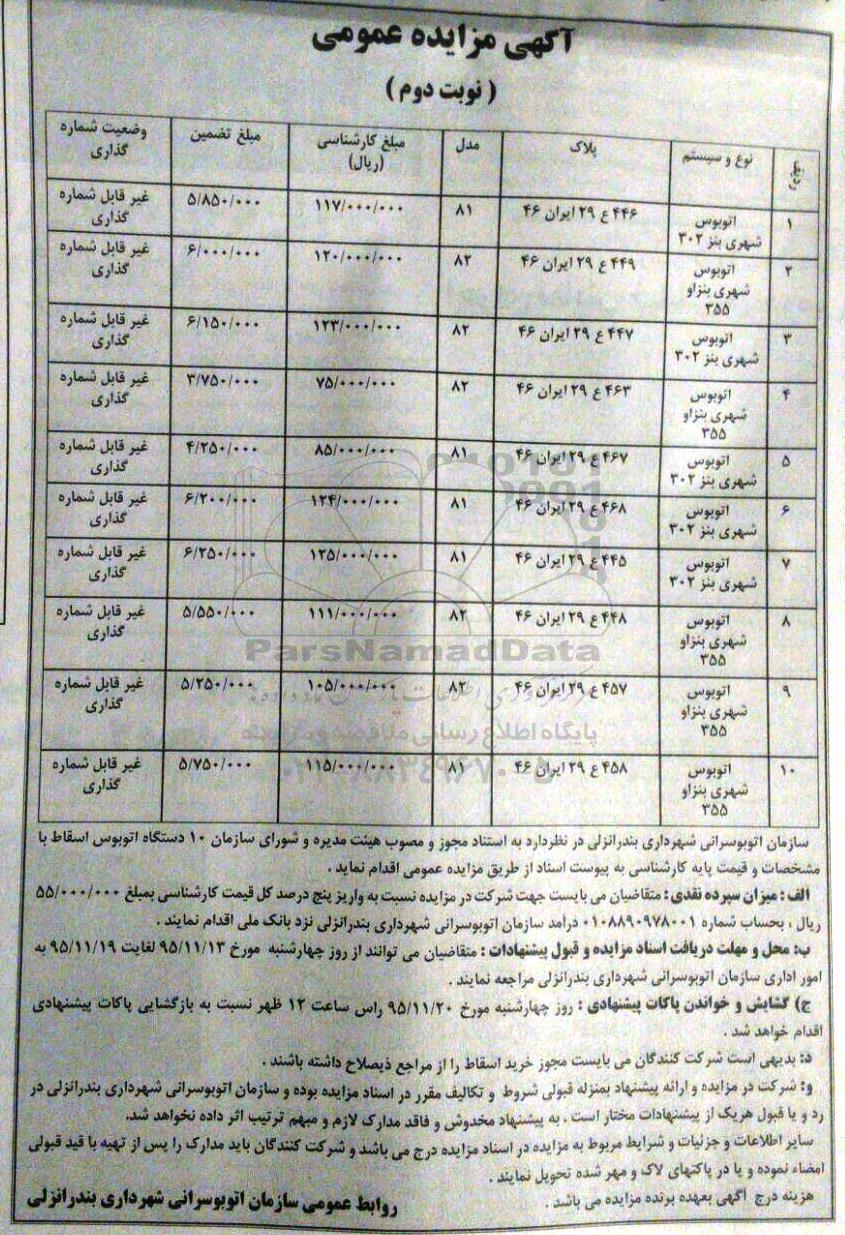 آگهی مزایده عمومی
( نوبت دوم )
ردیف نوع و سیستم پلاک مدل مبلغ کارشناسی (ریال) مبلغ تضمین وضعیت شماره گذاری
۱ اتوبوس شهری بنز ۳۰۲ ۴۴۶ ع ۲۹ ایران ۴۶ ۸۱ ۱۱۷/۰۰۰/۰۰۰ ۵/۸۵۰/۰۰۰ غیر قابل شماره گذاری
۲ اتوبوس شهری بنزاو ۳۵۵ ۴۴۹ ع ۲۹ ایران ۴۶ ۸۲ ۱۲۰/۰۰۰/۰۰۰ ۶/۰۰۰/۰۰۰ غیر قابل شماره گذاری
۳ اتوبوس شهری بنز ۳۰۲ ۴۴۷ ع ۲۹ ایران ۴۶ ۸۲ ۱۲۳/۰۰۰/۰۰۰ ۶/۱۵۰/۰۰۰ غیر قابل شماره گذاری
۴ اتوبوس شهری بنزاو ۳۵۵ ۴۶۳ ع ۲۹ ایران ۴۶ ۸۲ ۷۵/۰۰۰/۰۰۰ ۳/۷۵۰/۰۰۰ غیر قابل شماره گذاری
۵ اتوبوس شهری بنز ۳۰۲ ۴۶۷ ع ۲۹ ایران ۴۶ ۸۱ ۸۵/۰۰۰/۰۰۰ ۴/۲۵۰/۰۰۰ غیر قابل شماره گذاری
۶ اتوبوس شهری بنز ۳۰۲ ۴۶۸ ع ۲۹ ایران ۴۶ ۸۱ ۱۲۴/۰۰۰/۰۰۰ ۶/۲۰۰/۰۰۰ غیر قابل شماره گذاری
۷ اتوبوس شهری بنز ۳۰۲ ۴۴۵ ع ۲۹ ایران ۴۶ ۸۱ ۱۲۵/۰۰۰/۰۰۰ ۶/۲۵۰/۰۰۰ غیر قابل شماره گذاری
۸ اتوبوس شهری بنزاو ۳۵۵ ۴۴۸ ع ۲۹ ایران ۴۶ ۸۲ ۱۱۱/۰۰۰/۰۰۰ ۵/۵۵۰/۰۰۰ غیر قابل شماره گذاری
۹ اتوبوس شهری بنزاو ۳۵۵ ۴۵۷ ع ۲۹ ایران ۴۶ ۸۲ ۱۰۵/۰۰۰/۰۰۰ ۵/۲۵۰/۰۰۰ غیر قابل شماره گذاری
۱۰ اتوبوس شهری بنزاو ۳۵۵ ۴۵۸ ع ۲۹ ایران ۴۶ ۸۱ ۱۱۵/۰۰۰/۰۰۰ ۵/۷۵۰/۰۰۰ غیر قابل شماره گذاری
ParsNamadData
پایگاه اطلاع رسانی مناقصه و مزایده
سازمان اتوبوسرانی شهرداری بندرانزلی در نظردارد به استناد مجوز و مصوب هیئت مدیره و شورای سازمان ۱۰ دستگاه اتوبوس اسقاط با
مشخصات و قیمت پایه کارشناسی به پیوست اسناد از طریق مزایده عمومی اقدام نماید .
الف : میزان سپرده نقدی : متقاضیان می بایست جهت شرکت در مزایده نسبت به واریز پنج درصد کل قیمت کارشناسی بمبلغ ۵۵/۰۰۰/۰۰۰
ریال ، بحساب شماره ۰۱۰۸۸۹۰۹۷۸۰۰۱ درآمد سازمان اتوبوسرانی شهرداری بندرانزلی نزد بانک ملی اقدام نمایند .
ب: محل و مهلت دریافت اسناد مزایده و قبول پیشنهادات : متقاضیان می توانند از روز چهارشنبه مورخ ۹۵/۱۱/۱۳ لغایت ۹۵/۱۱/۱۹ به
امور اداری سازمان اتوبوسرانی شهرداری بندرانزلی مراجعه نمایند .
ج) گشایش و خواندن پاکات پیشنهادی : روز چهارشنبه مورخ ۹۵/۱۱/۲۰ راس ساعت ۱۲ ظهر نسبت به بازگشایی پاکات پیشنهادی
اقدام خواهد شد .
د: بدیهی است شرکت کنندگان می بایست مجوز خرید اسقاط را از مراجع ذیصلاح داشته باشند .
و: شرکت در مزایده و ارائه پیشنهاد بمنزله قبولی شروط و تکالیف مقرر در اسناد مزایده بوده و سازمان اتوبوسرانی شهرداری بندرانزلی در
رد و یا قبول هریک از پیشنهادات مختار است . به پیشنهاد مخدوش و فاقد مدارک لازم و مبهم ترتیب اثر داده نخواهد شد.
سایر اطلاعات و جزئیات و شرایط مربوط به مزایده در اسناد مزایده درج می باشد و شرکت کنندگان باید مدارک را پس از تهیه با قید قبولی
امضاء نموده و یا در پاکتهای لاک و مهر شده تحویل نمایند .
هزینه درج آگهی بعهده برنده مزایده می باشد .
روابط عمومی سازمان اتوبوسرانی شهرداری بندرانزلی